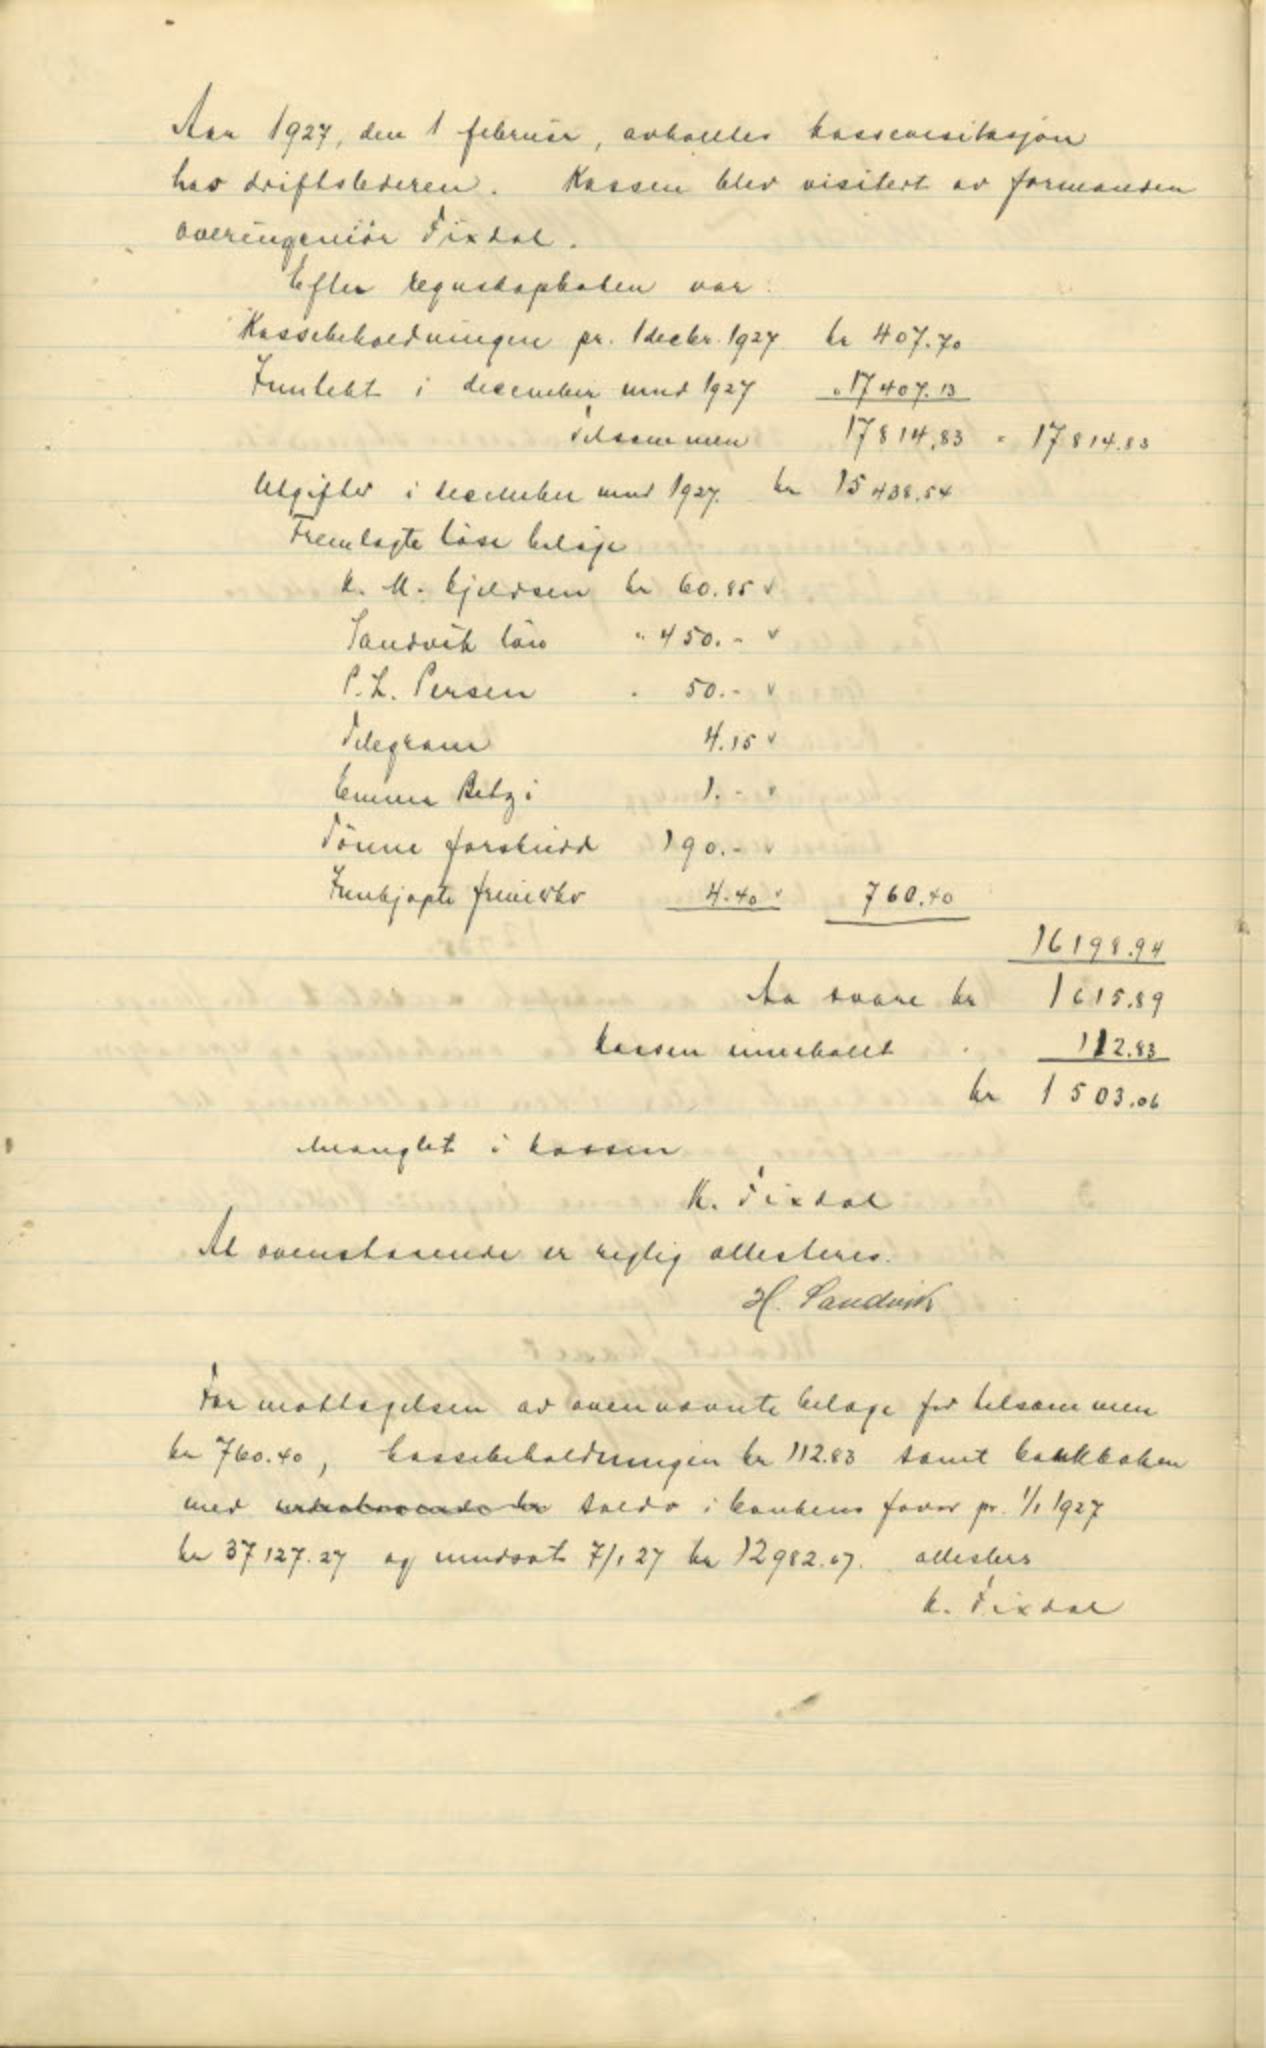 Aar 1927, den 1 februar, avholdtes kassevisitasjon
hos driftslederen. Kassen blev visitert av formanden
overingeniör Fixdal.
Efter regnskapboken var:
Kassebeholdningen pr. 1 decbr. 1927 kr 407.70
Inntekt i december mnd 1927 " 17407.13
Tilsammen 17814.83 = 17814.83
Utgifter i december mnd 1927. kr 15438.54
Fremlagte löse belöp
K. M. Kjeldsen kr 60.85 v
Sandvik lön " 450.- v
P. L. Persen " 50.- v
Telegram 4.15 v
Emma Betzi 1.- v
Tönne forskudd 190.- v
Innkjöpte frimerker 4.40 v 760.40
16198.94
Aa svare kr 1615.89
Kassen inneholdt " 112.83
kr 1503.06
manglet i kassen
K. Fixdal
At ovenstaaende er rigtig attesteres.
H. Sandvik
For mottagelsen av ovennevnte belöp for tilsammen
kr 760.40, kassebeholdningen kr 112.83 samt bankboken
med saldo i bankens favör pr. 1/1 1927
kr 37127.27 og innsat 7/1 27 kr 12982.07. attesters
K. Fixdal